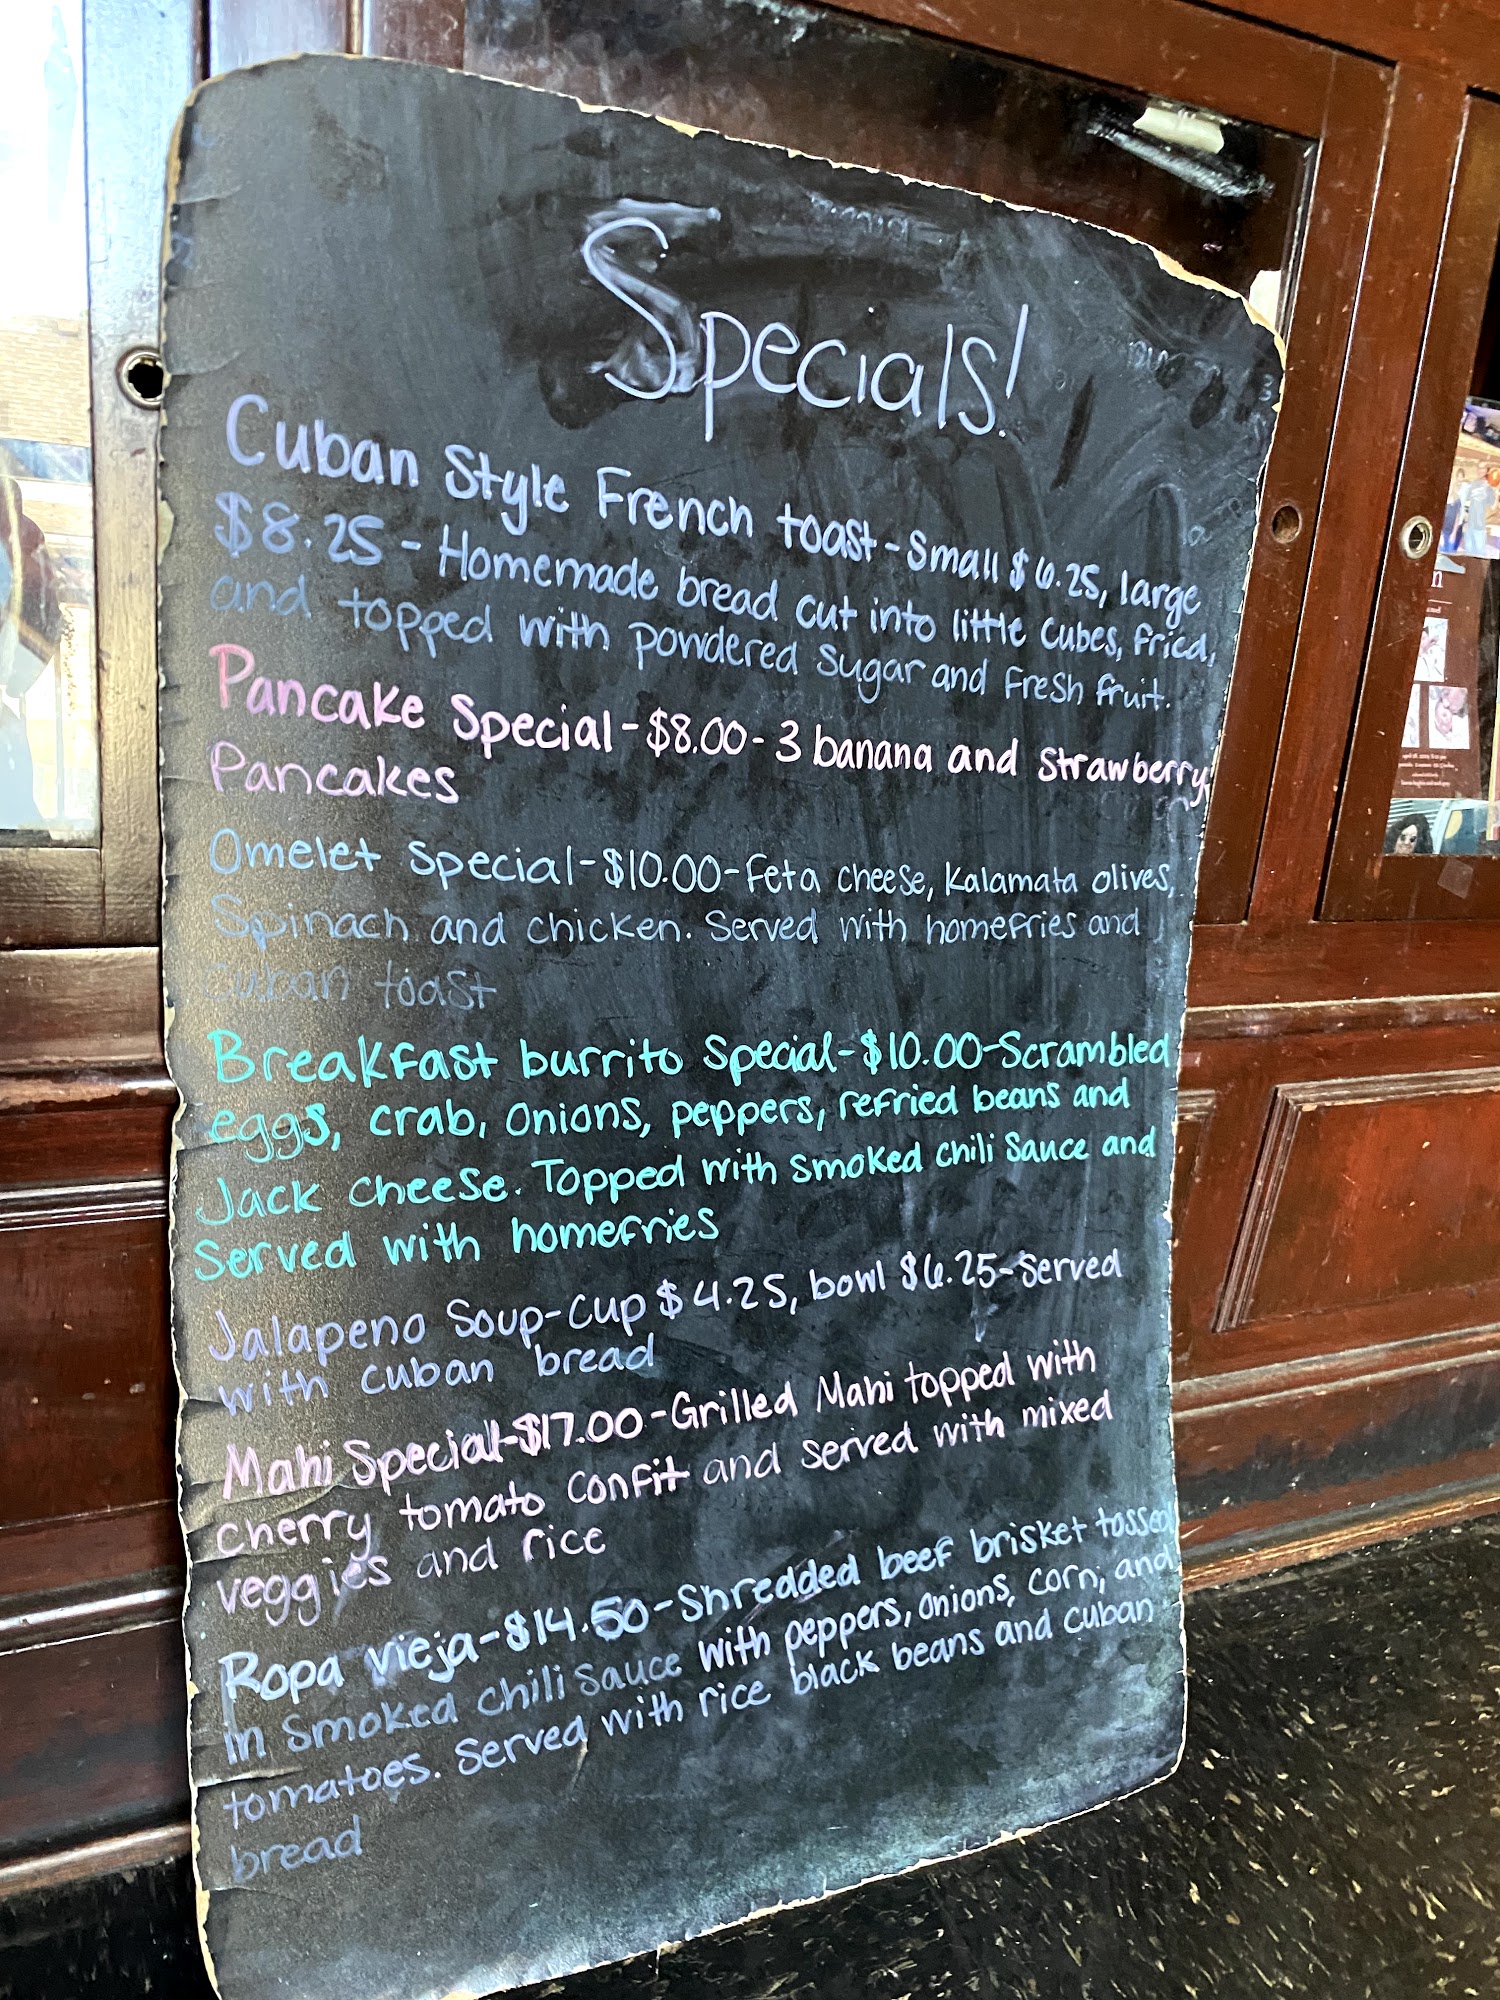 Specials!
Cuban Style French toast - small $6.25, large
$8.25 - Homemade bread cut into little cubes, fried,
and topped with powdered sugar and fresh fruit.
Pancake Special - $8.00 - 3 banana and strawberry
Pancakes
Omelet special - $10.00 - feta cheese, kalamata olives,
Spinach and chicken. Served with homefries and
cuban toast
Breakfast burrito special - $10.00 - Scrambled
eggs, crab, onions, peppers, refried beans and
Jack cheese. Topped with smoked chili sauce and
served with homefries
Jalapeno Soup - Cup $4.25, bowl $6.25 - served
with cuban bread
Mahi Special - $17.00 - Grilled Mahi topped with
cherry tomato confit and served with mixed
veggies and rice
Ropa vieja - $14.50 - Shredded beef brisket tossed
in smoked chili sauce with peppers, onions, corn, and
tomatoes. Served with rice black beans and cuban
bread